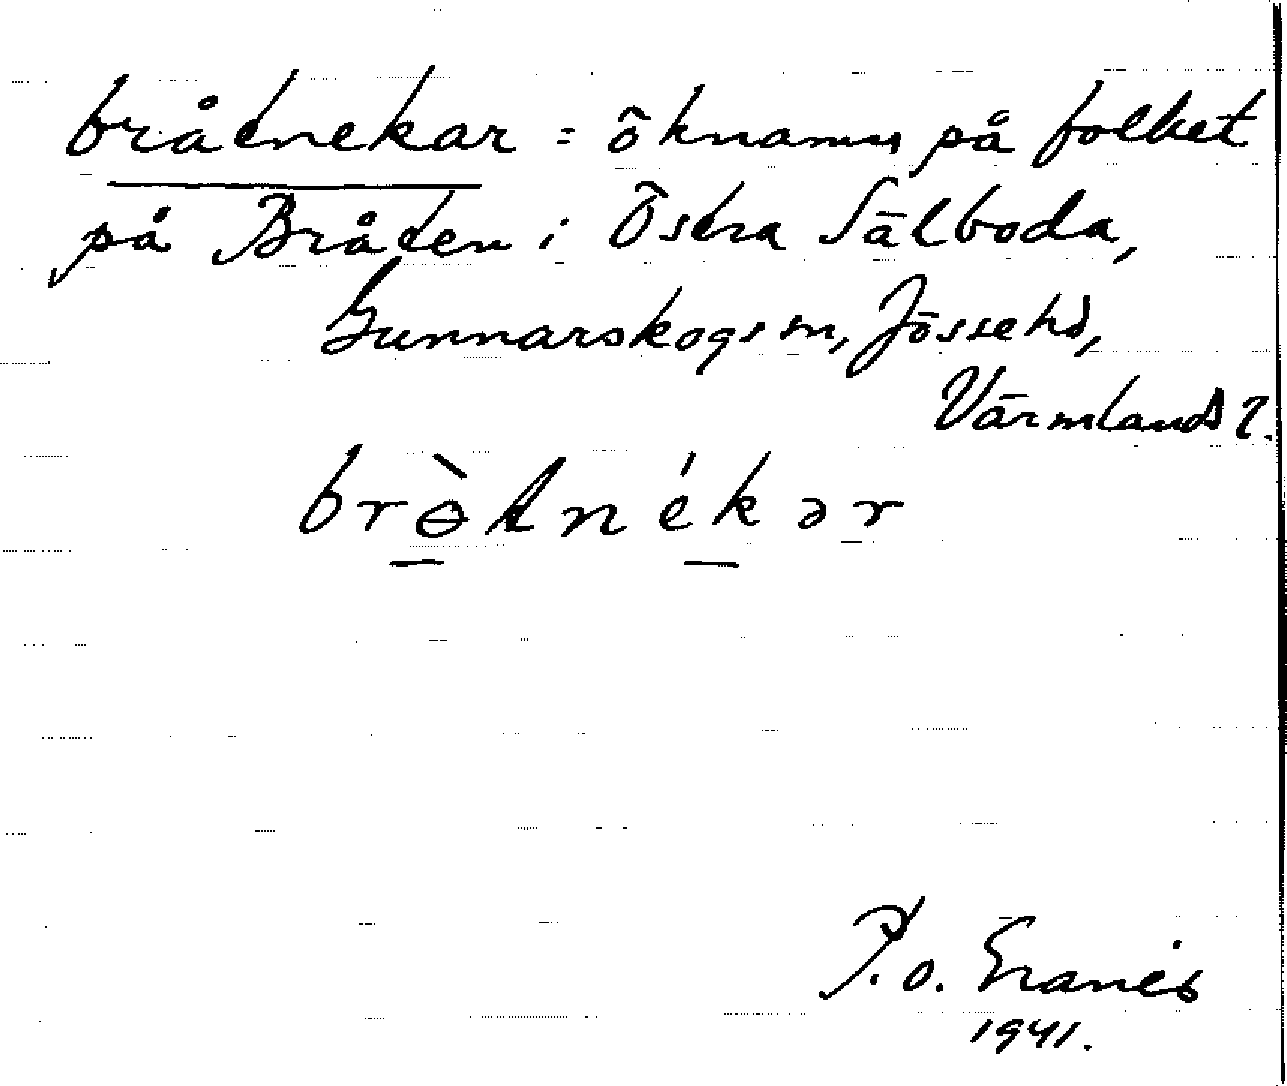 bråtnekar = öknamn på folket
på Bråten i Östra Sälboda,
Gunnarskogs m, Jössehd,
Värmlands l.
brɵ̀tnékər
P. o.
1941.